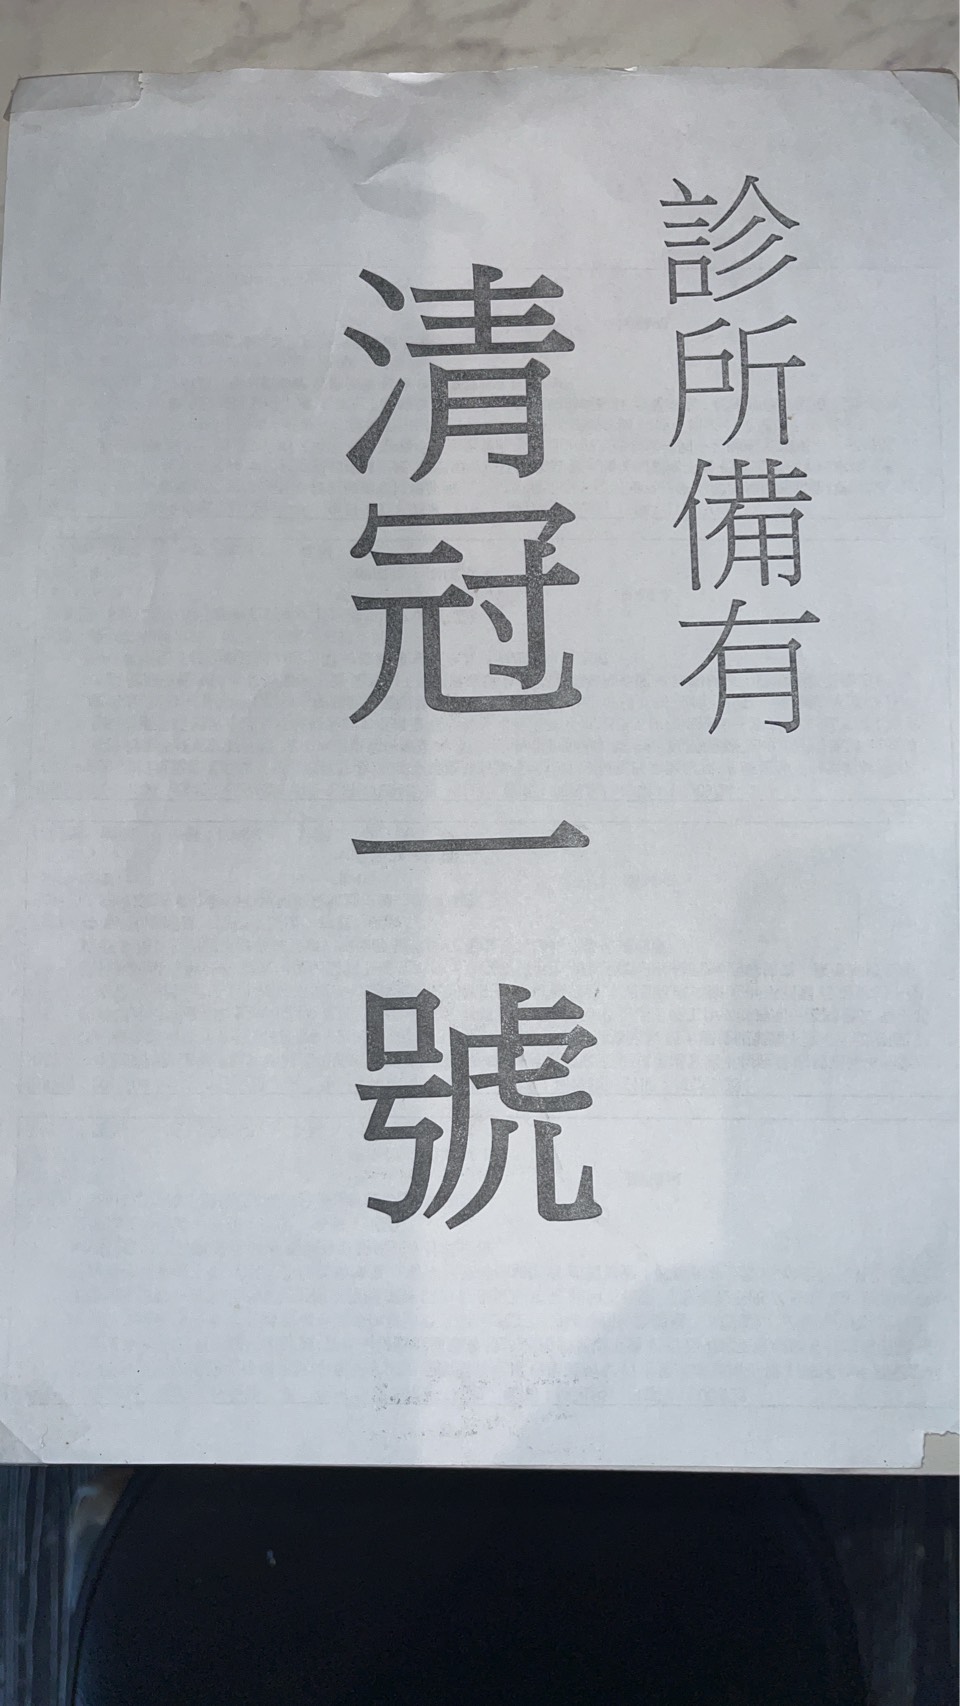 診所備有
清冠一號